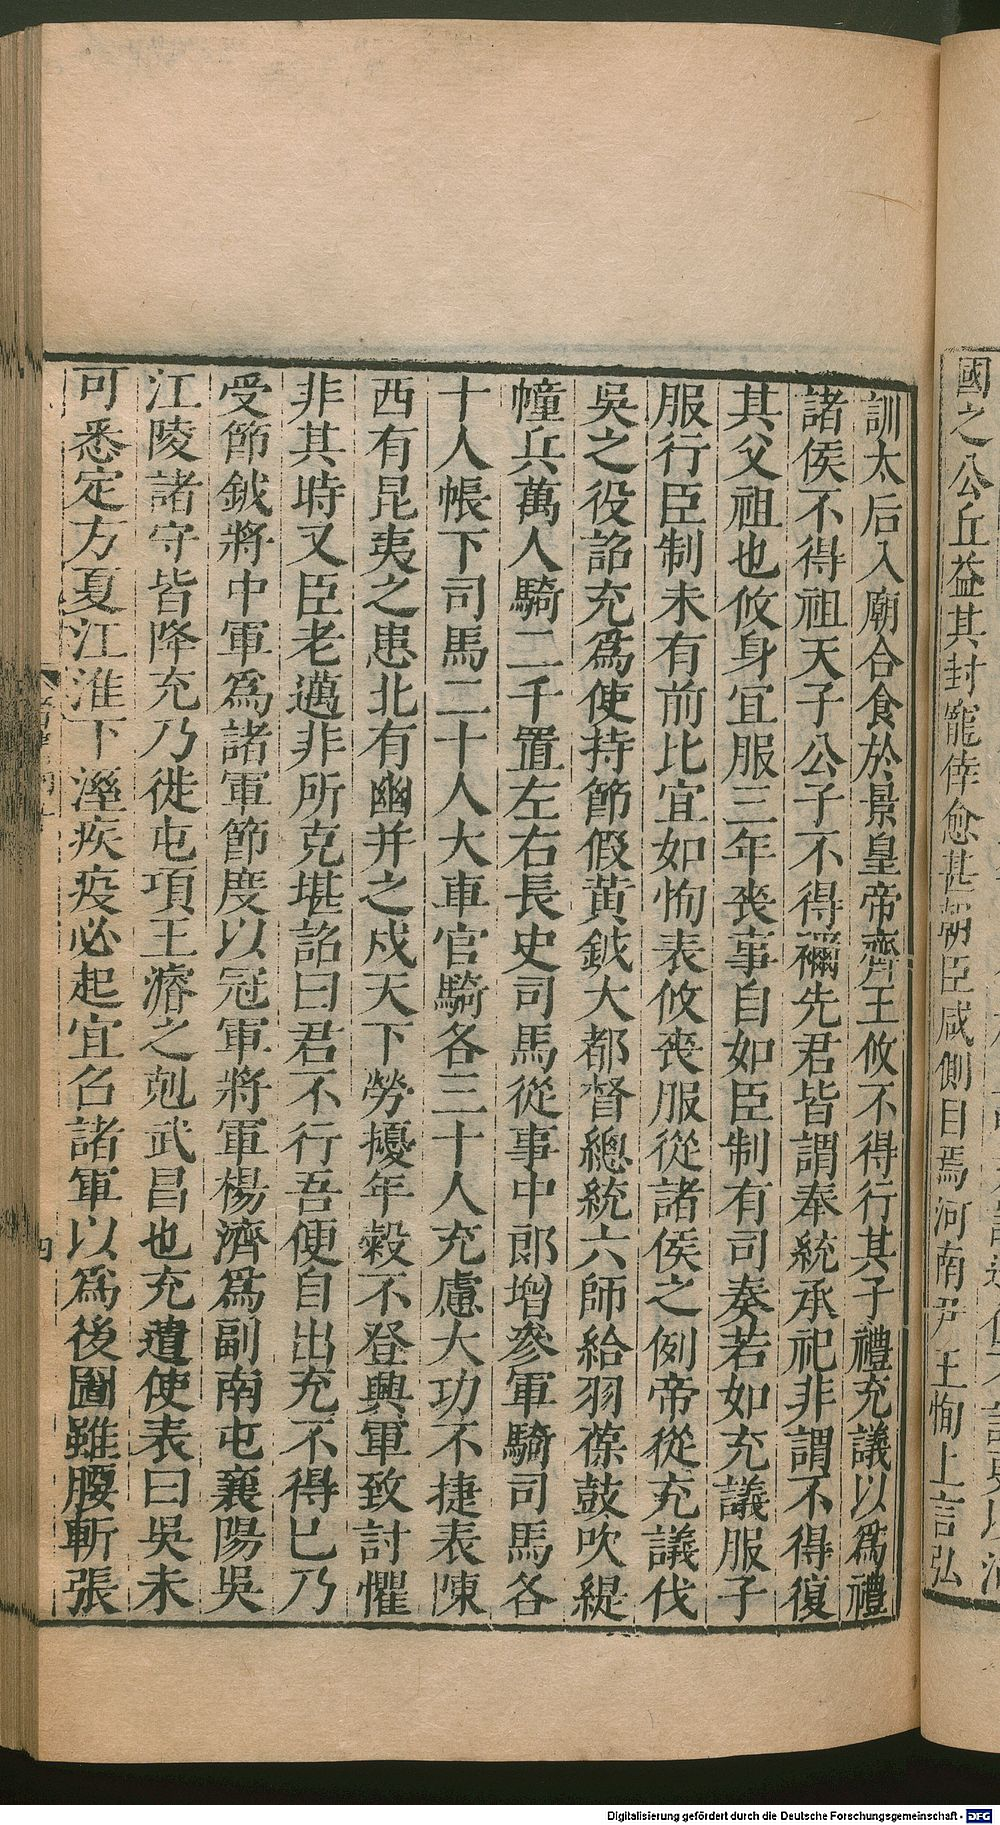 國之公丘益其封寵倖愈甚朝臣咸側目焉河南尹王恂上言弘
訓太后入廟合食於景皇帝齊王攸不得行其子禮充議以爲禮
諸侯不得祖天子公子不得禰先君皆謂奉統承祀非謂不得復
其父祖也攸身宜服三年喪事自如臣制有司奏若如充議服子
服行臣制未有前比宜如恂表攸喪服從諸侯之例帝從充議伐
吳之役詔充爲使持節假黃鉞大都督總統六師給羽葆鼓吹緹
幢兵萬人騎二千置左右長史司馬從事中郎增參軍騎司馬各
十人帳下司馬二十人大車官騎各三十人充慮大功不捷表陳
西有昆夷之患北有幽并之戍天下勞擾年穀不登興軍致討懼
非其時又臣老邁非所克堪詔曰君不行吾便自出充不得已乃
受節鉞將中軍爲諸軍節度以冠軍將軍楊濟爲副南屯襄陽吳
江陵諸守皆降充乃徙屯項王濬之剋武昌也充遣使表曰吳未
可悉定方夏江淮下溼疾疫必起宜召諸軍以爲後圖雖腰斬張
四
Digitalisierung gefördert durch die Deutsche Forschungsgemeinschaft - DFG